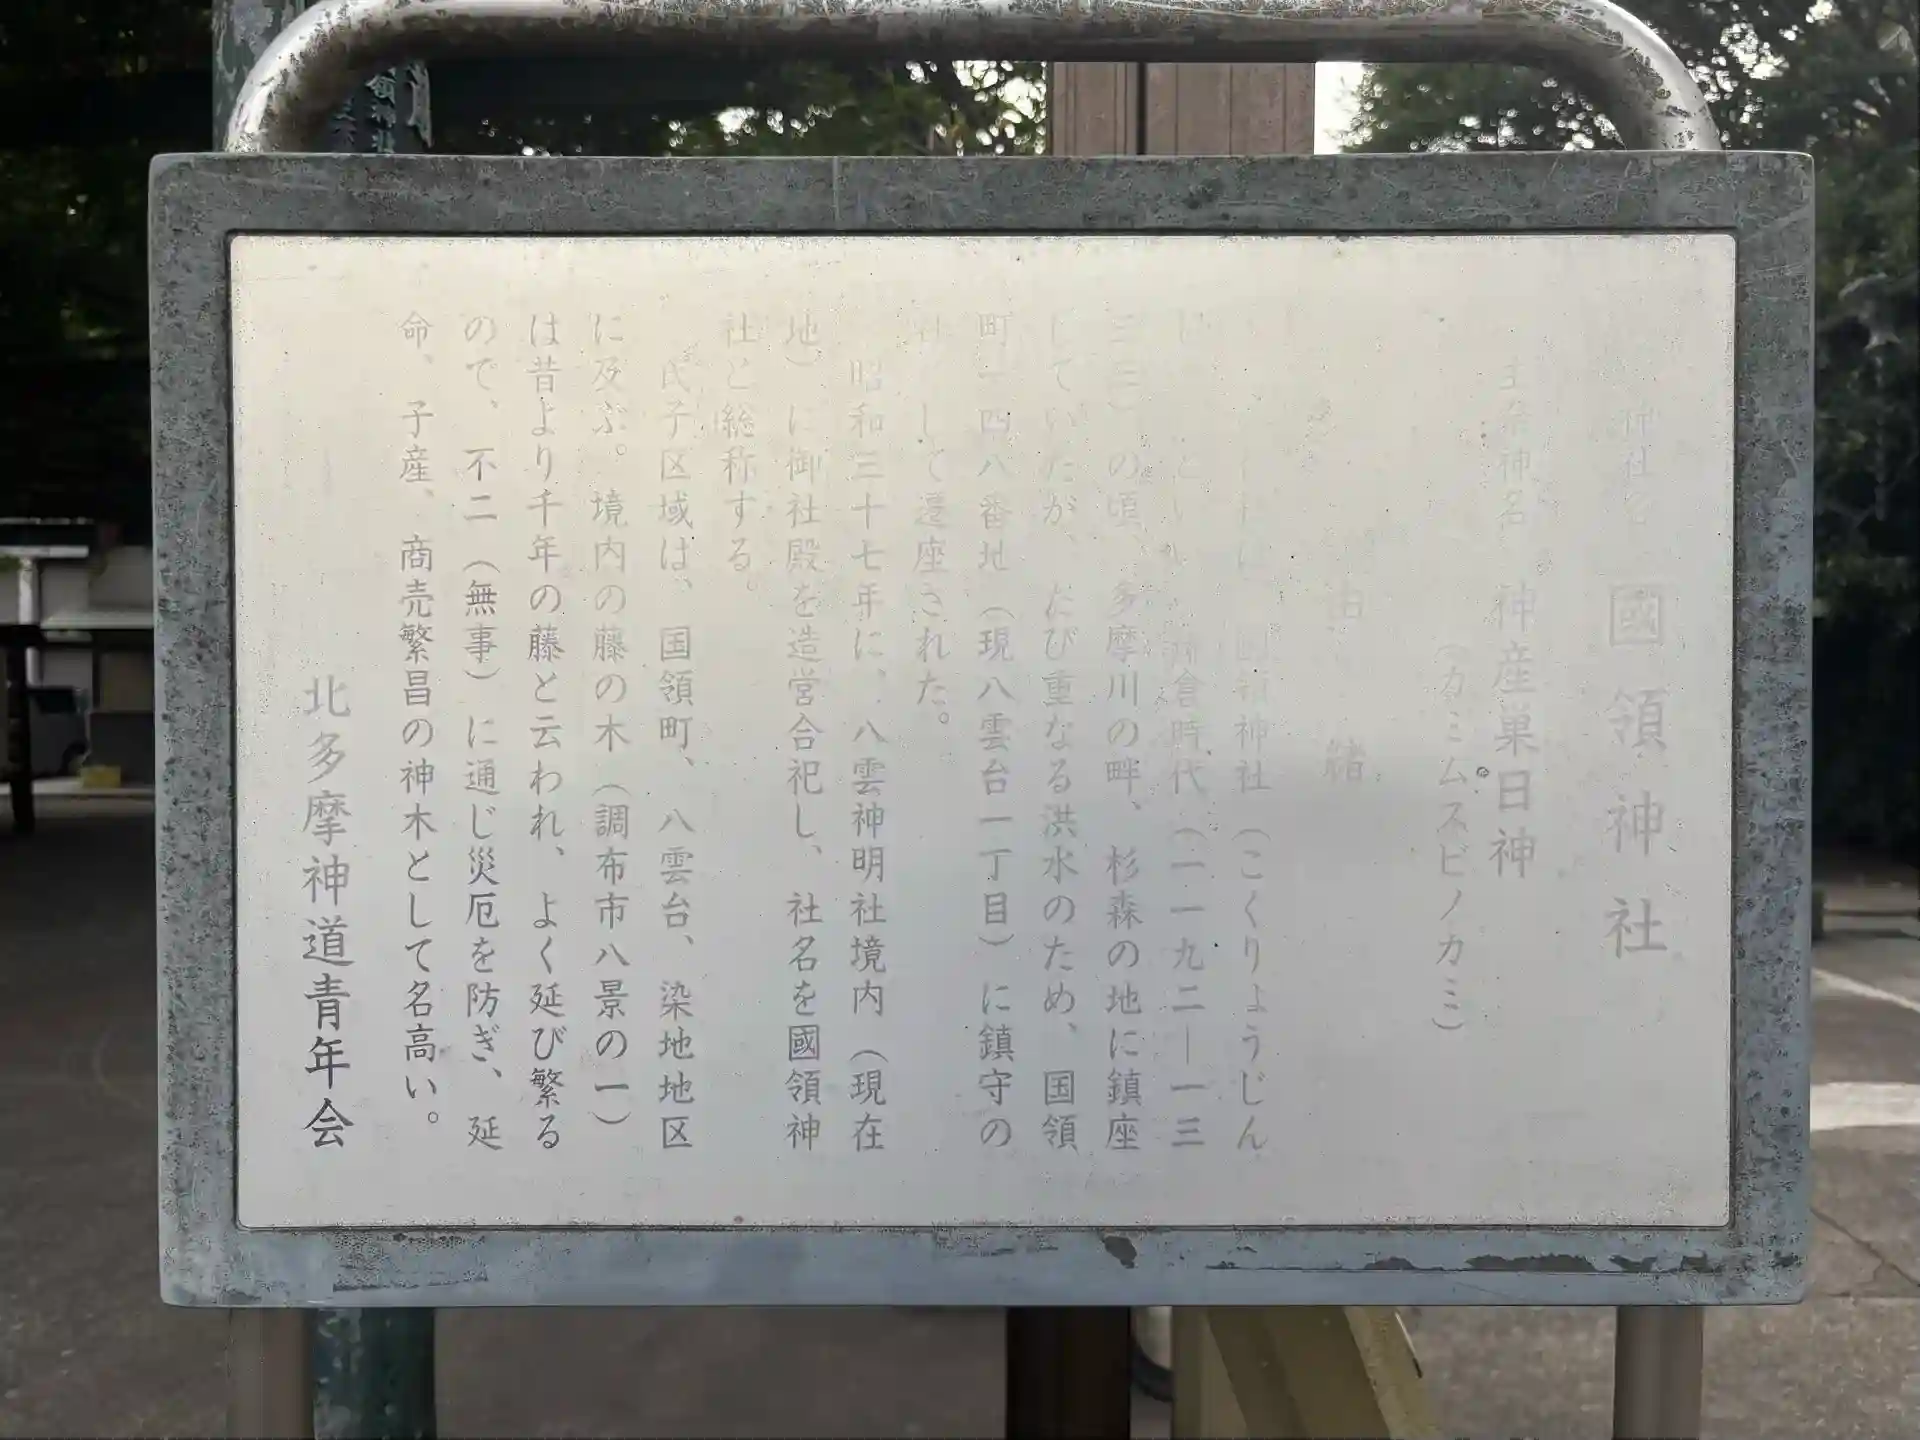 神社名 國領神社
主祭神名 神産巣日神
(カミムスビノカミ)
由緒
国領神社(こくりょうじん
鎌倉時代(一一九二―一三
三三)の頃、多摩川の畔、杉森の地に鎮座
していたが、たび重なる洪水のため、国領
町一四八番地(現八雲台一丁目)に鎮守の
社として遷座された。
昭和三十七年に、八雲神明社境内(現在
地)に御社殿を造営合祀し、社名を國領神
社と総称する。
氏子区域は、国領町、八雲台、染地地区
に及ぶ。境内の藤の木(調布市八景の一)
は昔より千年の藤と云われ、よく延び繁る
ので、不二(無事)に通じ災厄を防ぎ、延
命、子産、商売繁昌の神木として名高い。
北多摩神道青年会